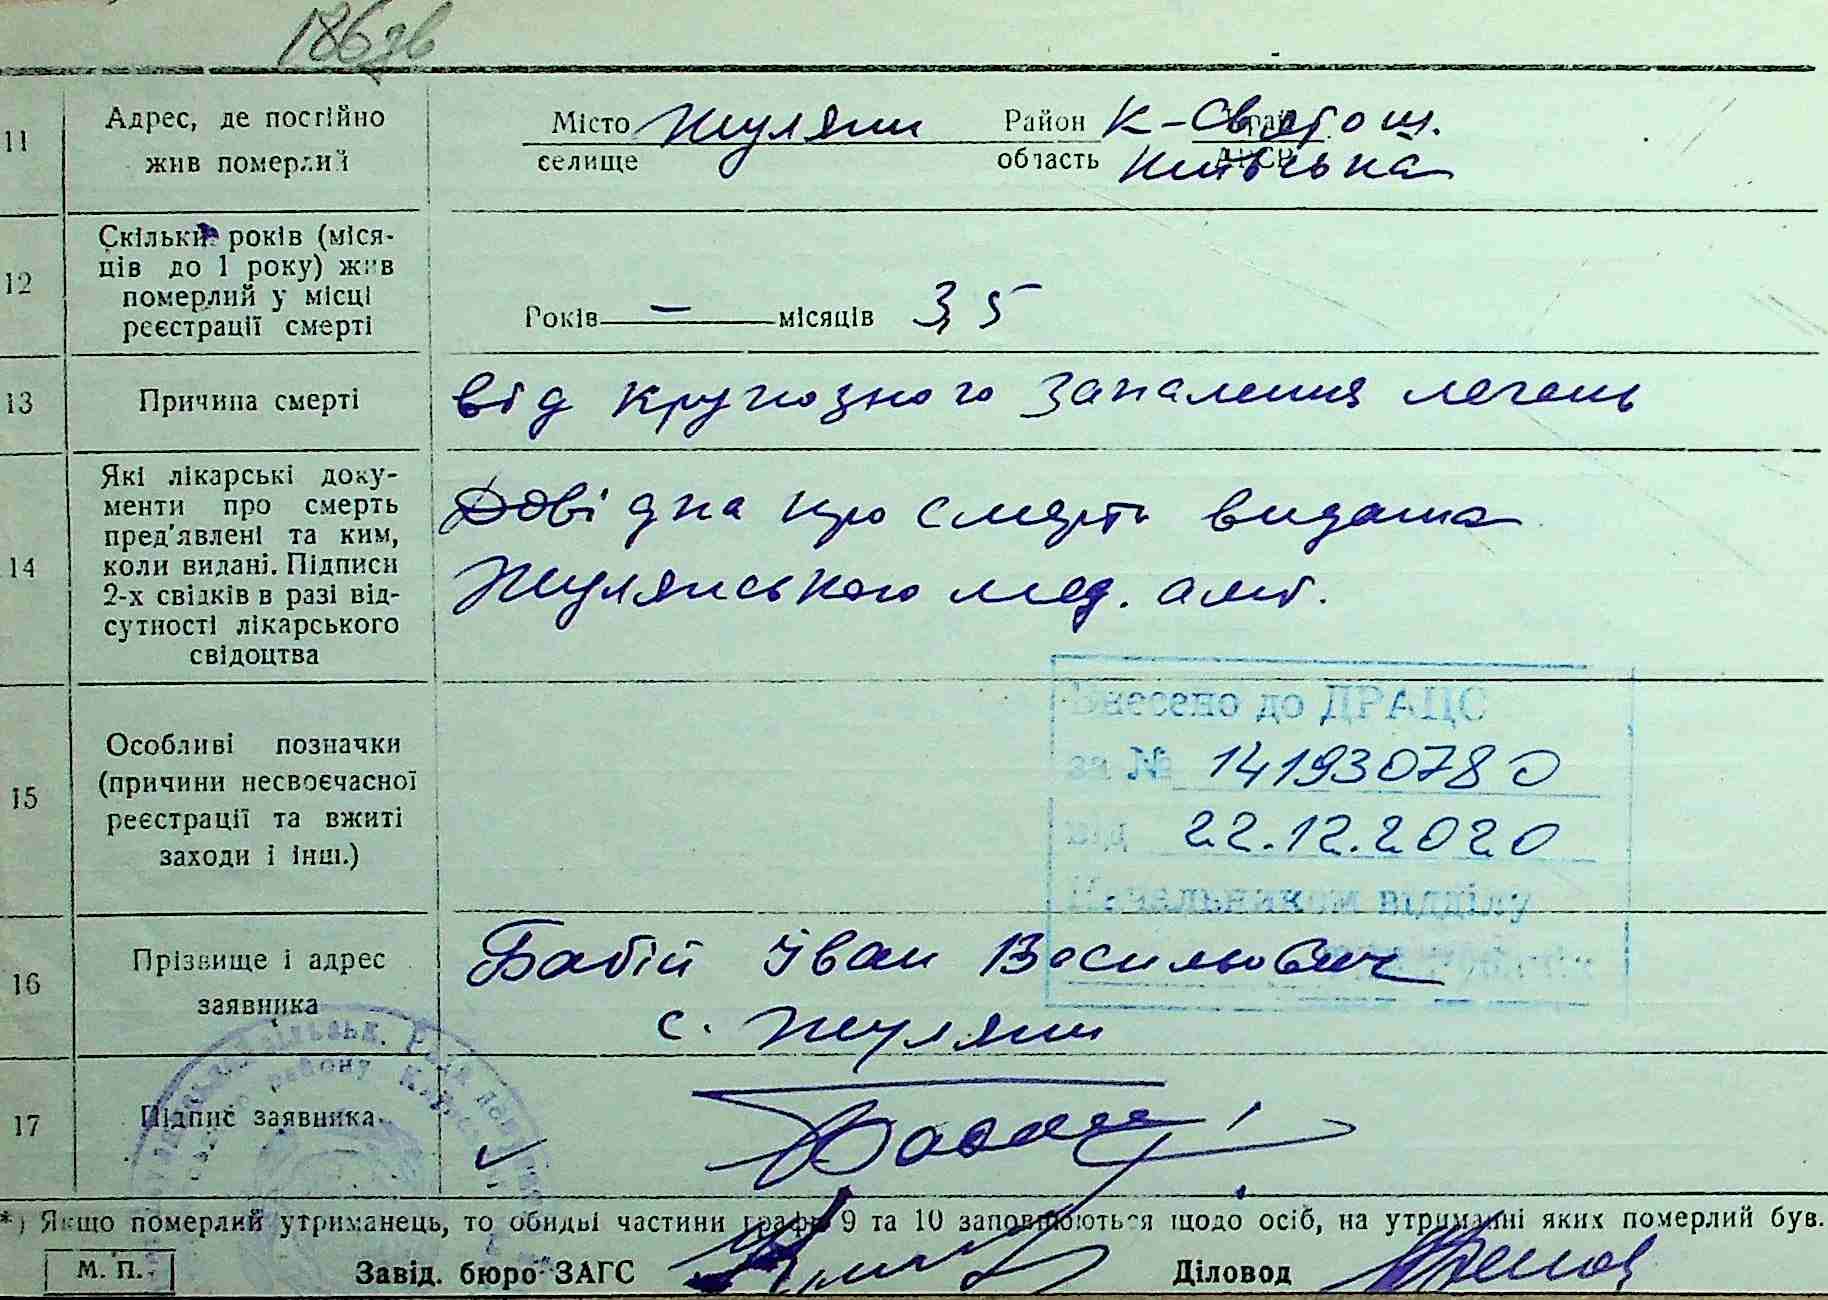 186зв
11
Адрес, де постійно
жив померлий
Місто Жуляни Район К-Святош.
селище область Київська
12
Скільки років (міся-
ців до 1 року) жив
померлий у місці
реєстрації смерті
Років — місяців 3,5
13
Причина смерті
від крупозного запалення легень
14
Які лікарські доку-
менти про смерть
пред'явлені та ким,
коли видані. Підписи
2-х свідків в разі від-
сутності лікарського
свідоцтва
Довідка про смерть видана
Жулянського мед. амб.
15
Особливі позначки
(причини несвоєчасної
реєстрації та вжиті
заходи і інш.)
Внесено до ДРАЦС
за № 141930780
від 22.12.2020
Начальником відділу
16
Прізвище і адрес
заявника
Бабій Іван Васильович
с. Жуляни
17
Підпис заявника
*) Якщо померлий утриманець, то обидві частини графи 9 та 10 заповнюються щодо осіб, на утриманні яких померлий був.
М. П.
Завід. бюро ЗАГС
Діловод